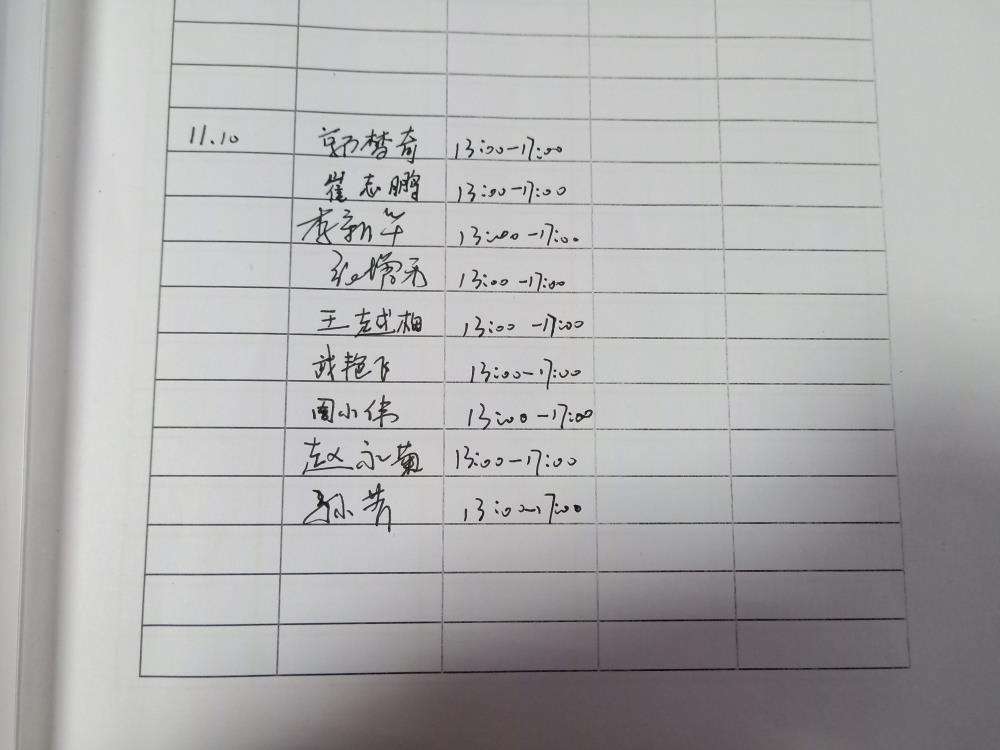 11.10 郭梦奇 13:00-17:00
崔志鹏 13:00-17:00
李新华 13:00-17:00
张增禾 13:00-17:00
王越相 13:00-17:00
武艳飞 13:00-17:00
周小伟 13:00-17:00
赵永菊 13:00-17:00
孙芳 13:00-17:00